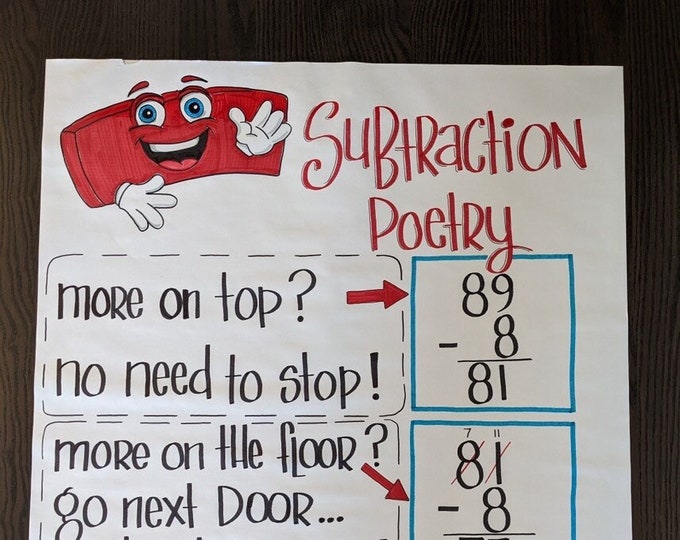 Subtraction
Poetry
more on top?
no need to stop!
89
- 8
81
more on the floor?
go next door...
7 11
81
- 8